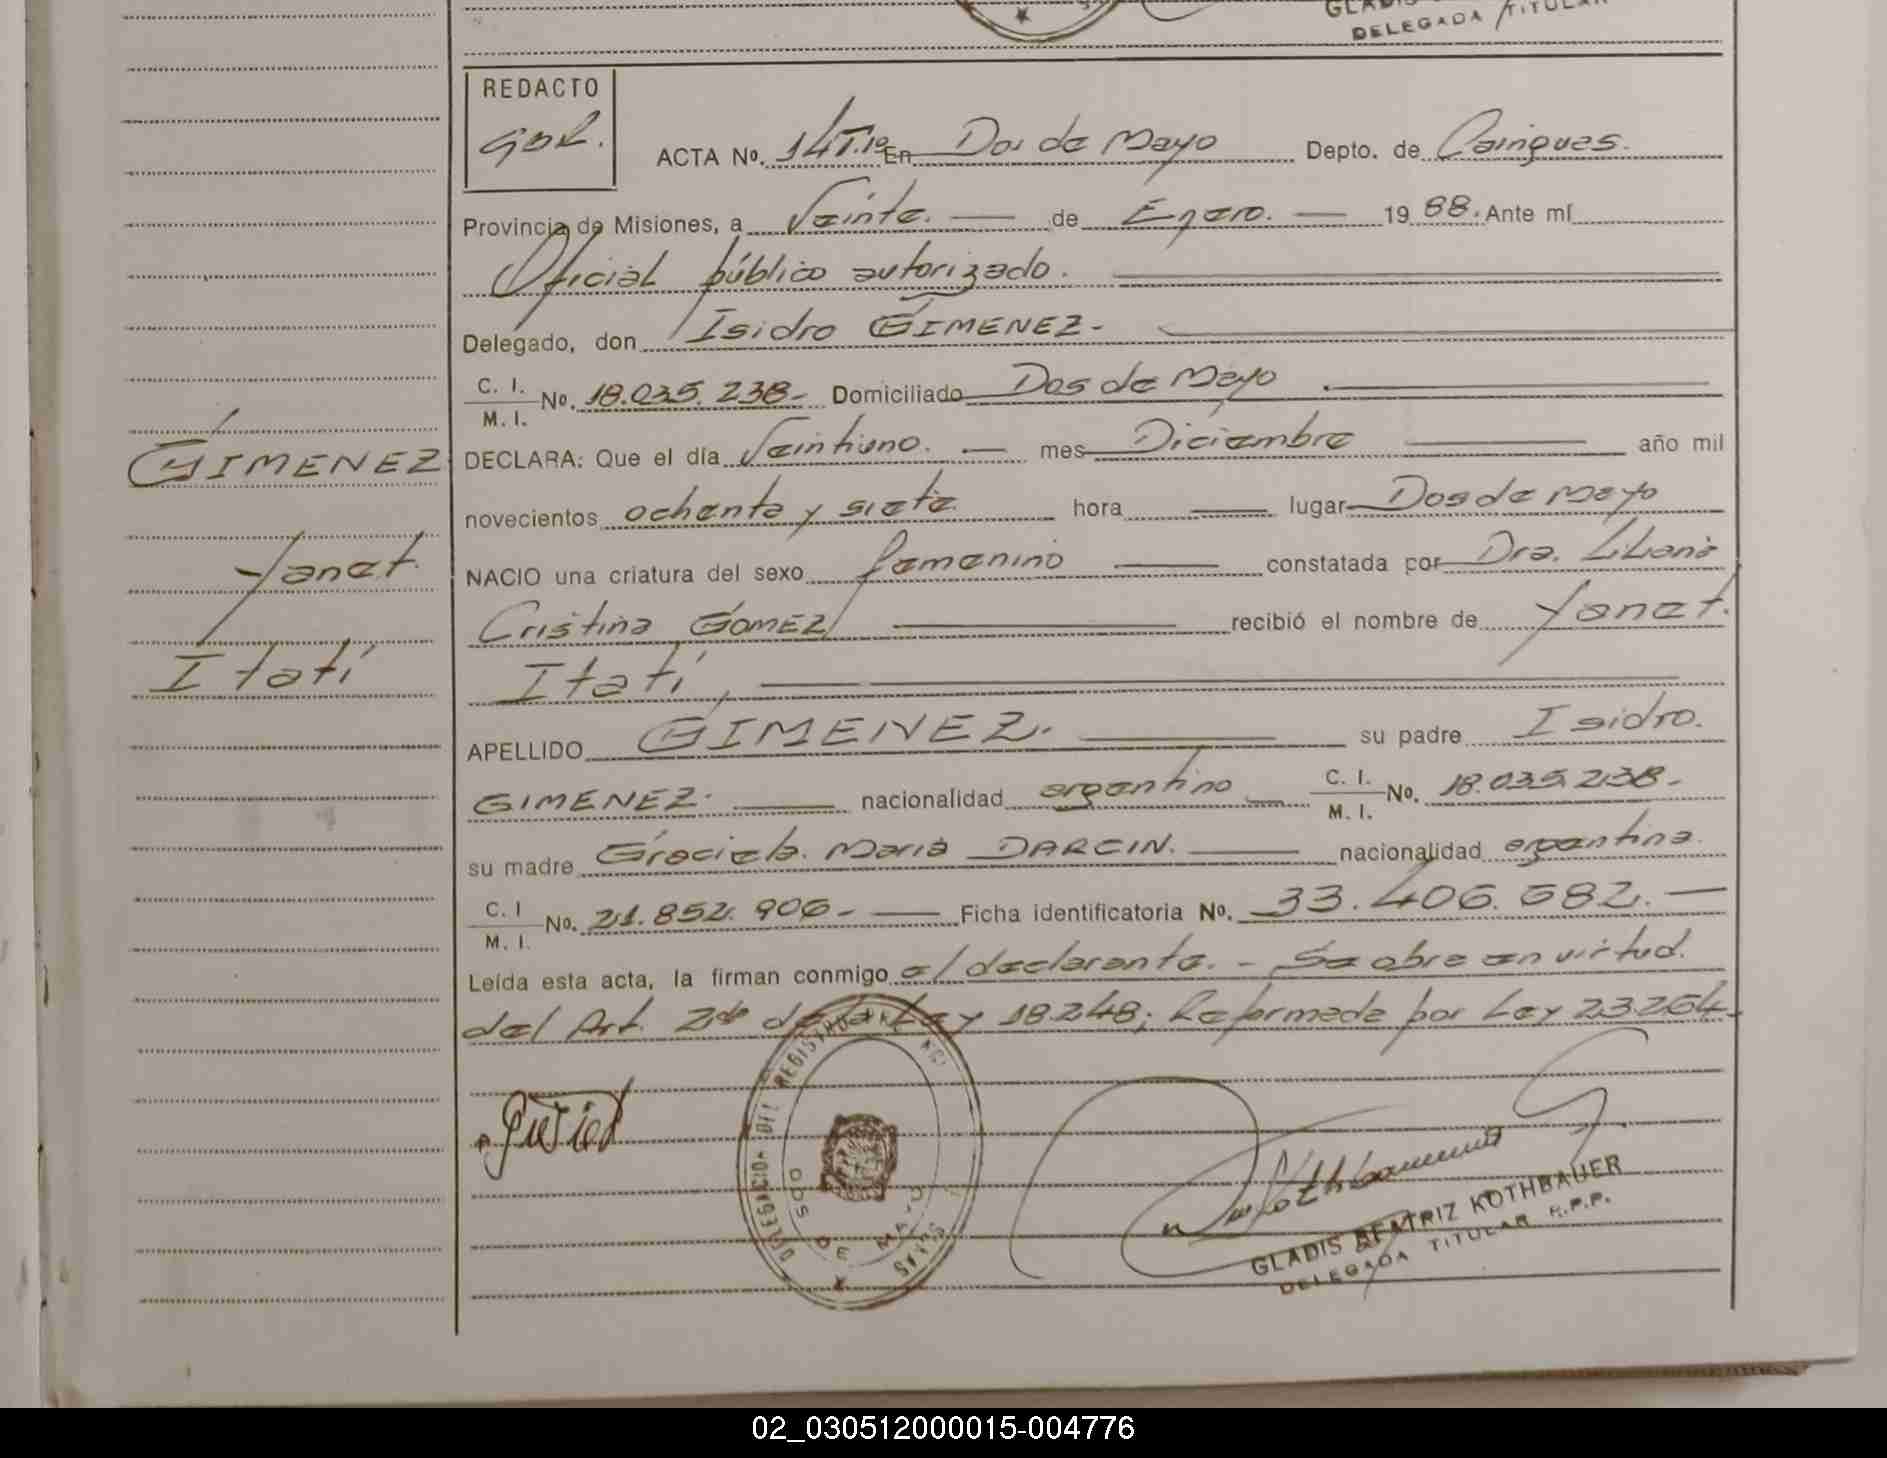 DELEGADA TITULAR
REDACTO
ACTA Nº. 14T.1º En Dos de Mayo Depto. de Cainguas.
Provincia de Misiones, a Veinte. de Enero. 19 88. Ante mí
Oficial público autorizado.
Delegado, don Isidro GIMENEZ-
C. I.
M. I. Nº. 18.035.238- Domiciliado Dos de Mayo
GIMENEZ DECLARA: Que el día Veintiuno. mes Diciembre año mil
novecientos ochenta y siete hora lugar Dos de Mayo
Yanet. NACIO una criatura del sexo femenino constatada por Dra. Liliana
Cristina GOMEZ recibió el nombre de Yanet.
Itatí Itatí,
APELLIDO GIMENEZ. su padre Isidro.
GIMENEZ. nacionalidad argentino C. I.
M. I. Nº. 18.035.238-
su madre Graciela Maria DARCIN. nacionalidad argentina.
C. I
M. I. Nº. 21.852.906- Ficha identificatoria Nº. 33.406.682.-
Leída esta acta, la firman conmigo el declarante. - Se abre en virtud.
del Art. 2do de la Ley 18248; Reformada por Ley 23264-
DELEGACION DEL REGISTRO
DOS DE MAYO
GLADIS BEATRIZ KOTHBAUER
DELEGADA TITULAR R.P.P.
02_030512000015-004776